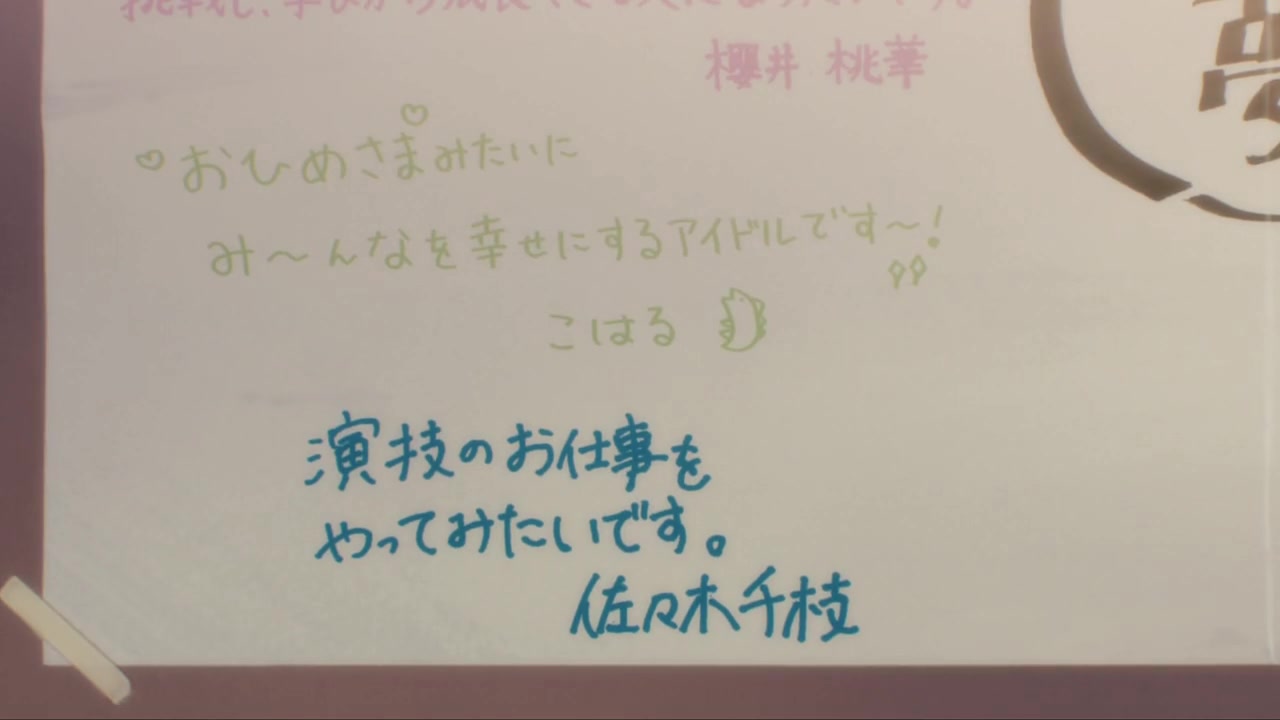 挑戦し、学びから成長
櫻井 桃華
夢
♡おひめさまみたいに
み〜んなを幸せにするアイドルです〜!
こはる
演技のお仕事を
やってみたいです。
佐々木千枝